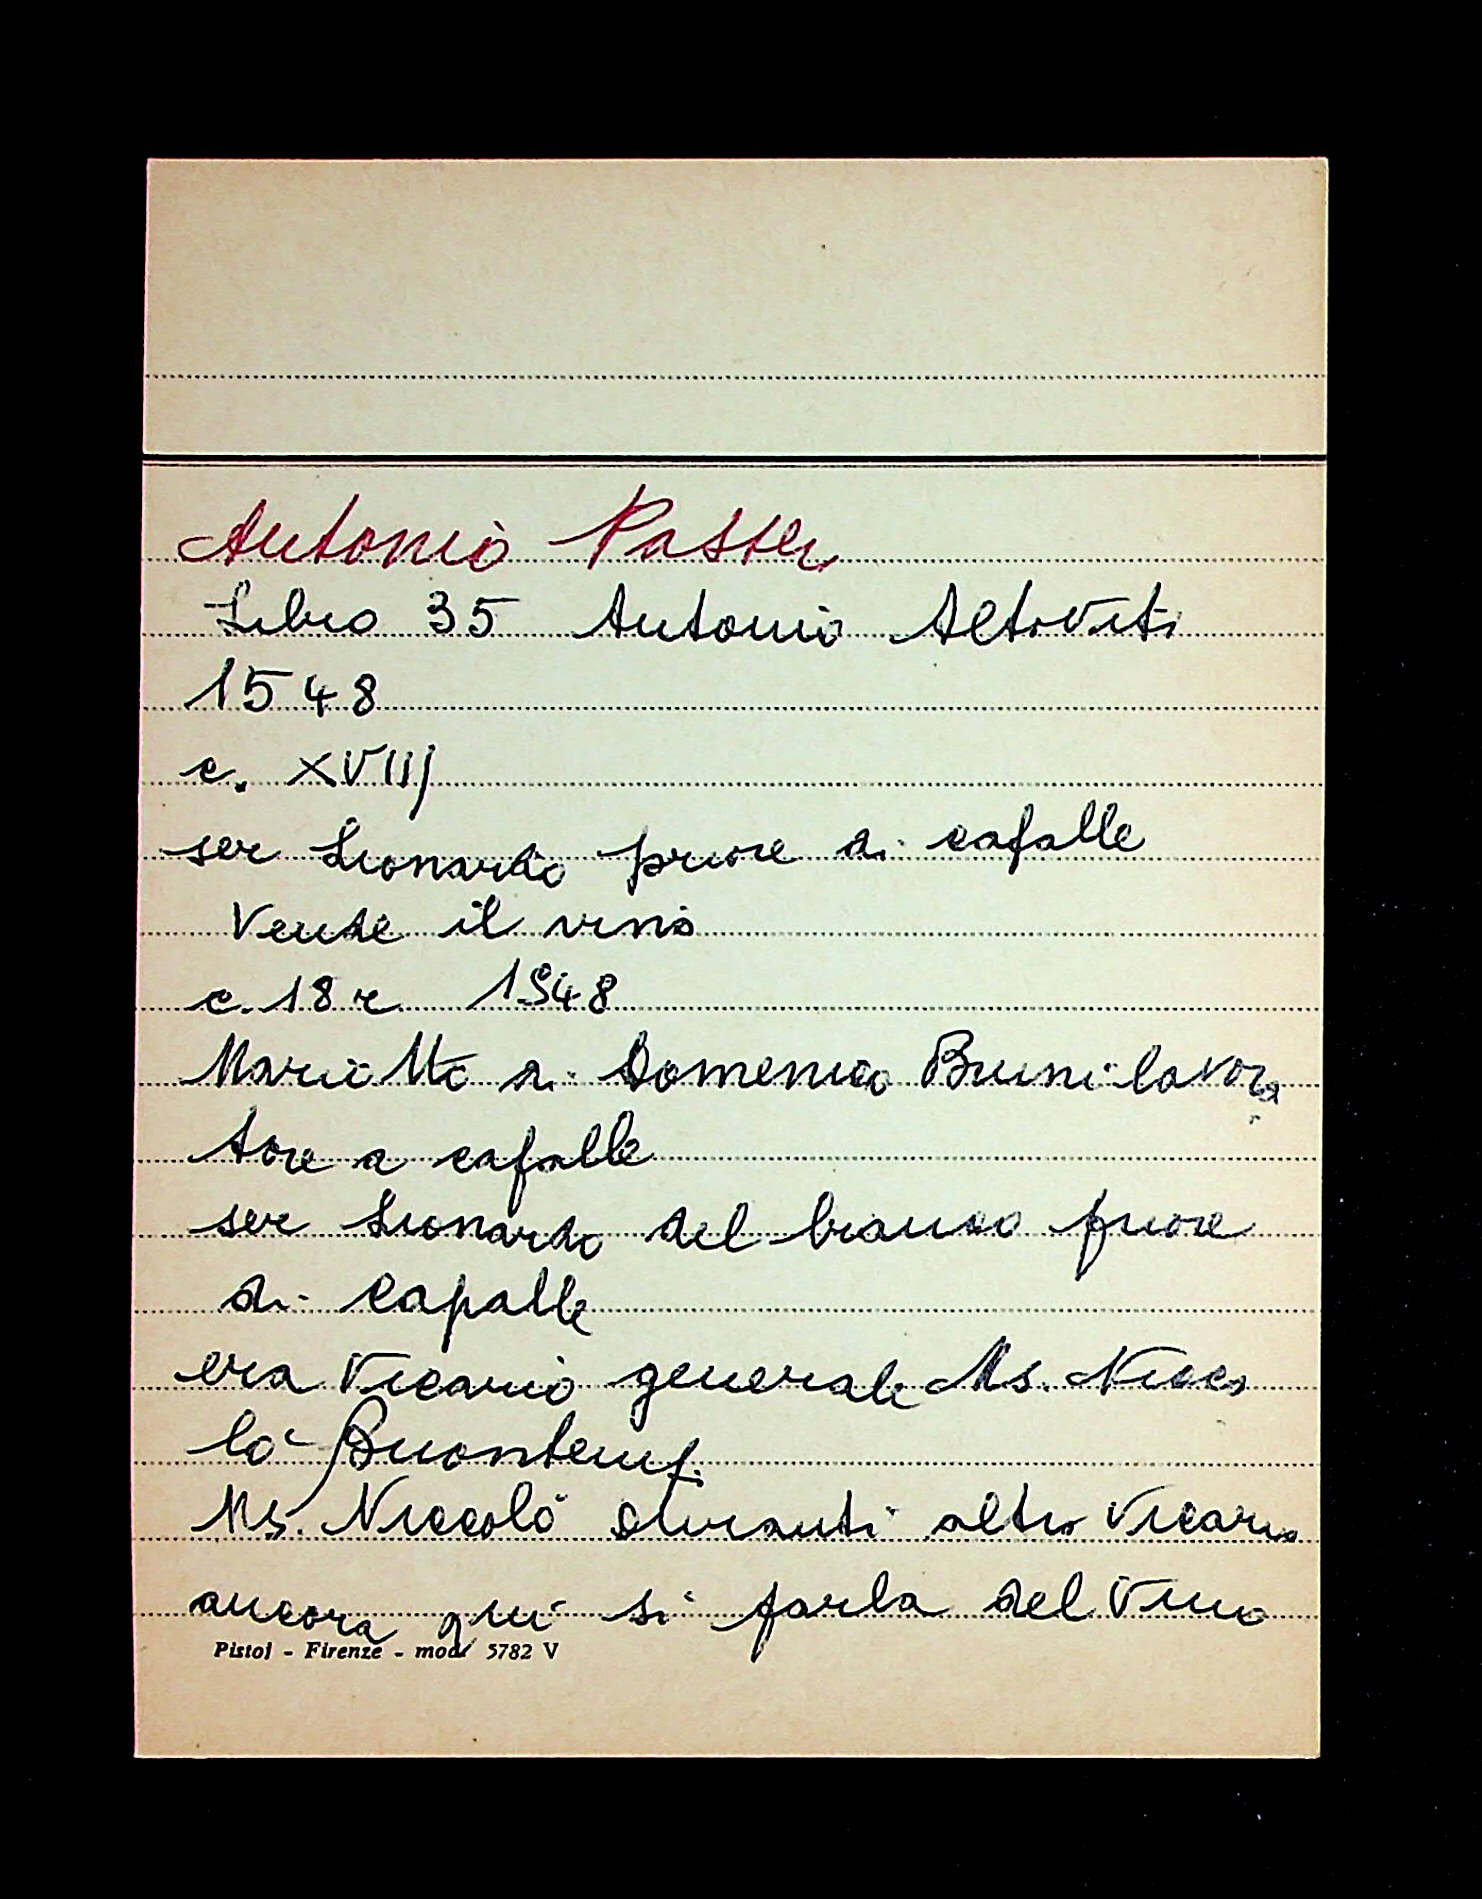 Antonio Passer
Libro 35 Antonio Altoviti
1548
c. XVIIJ
ser Lionardo priore di capalle
Vende il vino
c. 18 r 1548
Mariotto di Domenico Bruni lavora
tore a capalle
ser Lionardo del branca priore
di Capalle
era Vicario generale Ms. Nicco
lò Buontempi
Ms. Niccolò altro Vicario
ancora qui si parla del Vino
Pistol - Firenze - mod 5782 V